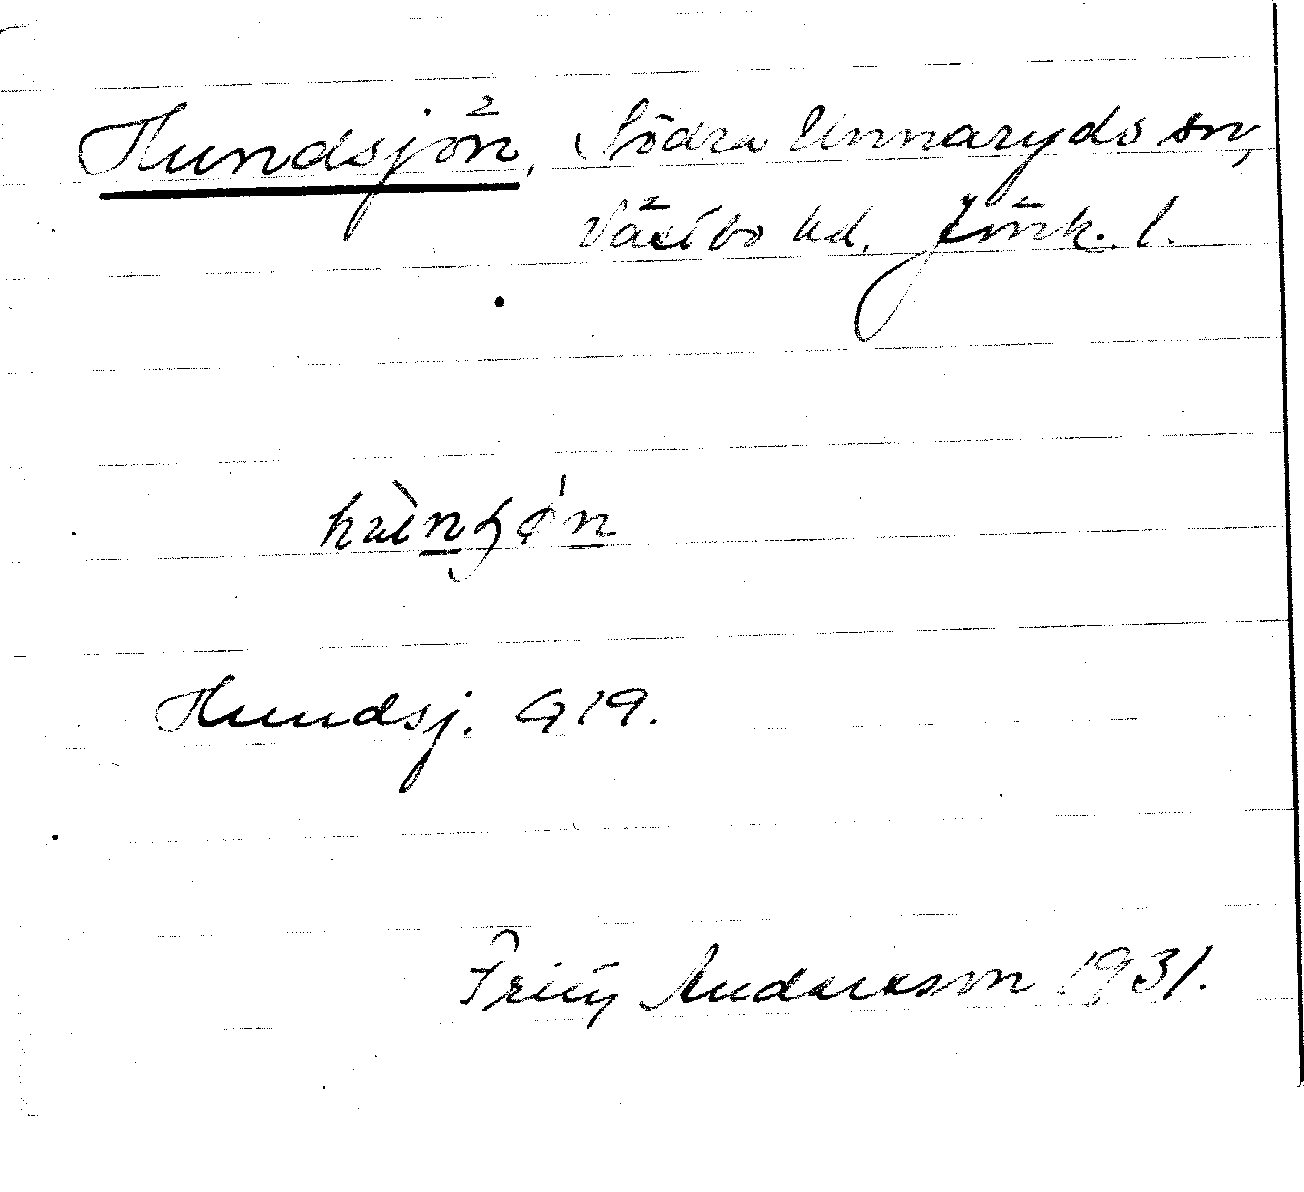 Hundsjön, Södra Unnaryds sn,
Västbo hd. Jönk. l.
Hundsj. G 19.
Andersson 1931.